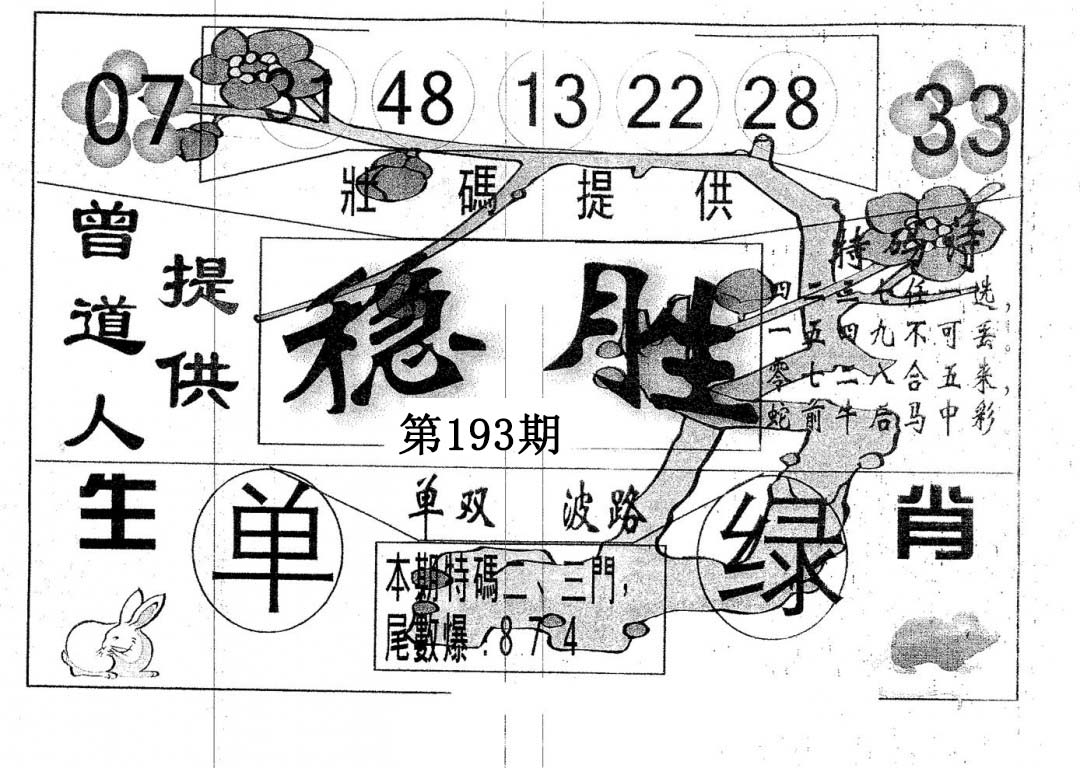 07 31 48 13 22 28 33
壯碼提供
曾道人
提供
特码诗
四二三七任一选，
一五四九不可丢。
零七二八合五来，
蛇前牛后马中彩
稳胜
第193期
生
单
单双 波路
绿
肖
本期特碼二、三門，
尾數爆：874